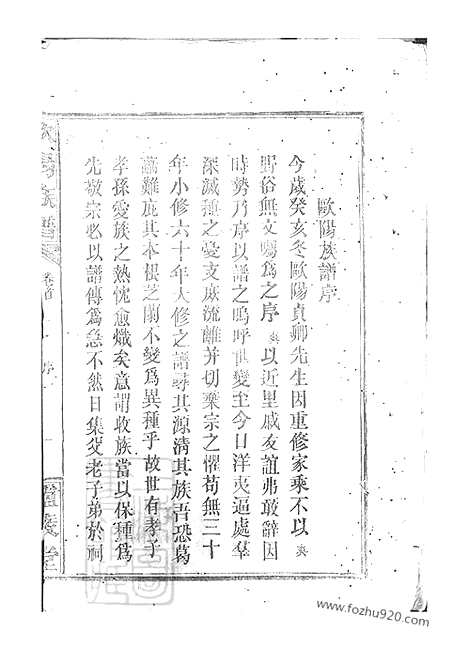 歐陽族譜序
今歲癸亥冬歐陽貞卿先生因重修家乘不以爽
野俗無文囑爲之序爽以近里戚友誼弗敢辭因
時勢乃序以譜之嗚呼世變至今日洋夷逼處羣
深滅種之憂支厥流離并切棄宗之懼苟無三十
年小修六十年大修之譜尋其源清其族吾恐葛
藟難庇其本根芝蘭不變爲異種乎故世有孝子
孝孫愛族之熱忱愈熾矣意謂收族當以保種爲
先敬宗必以譜傳爲急不然日集父老子弟於祠
卷首
序
一
www.fozhu920.com